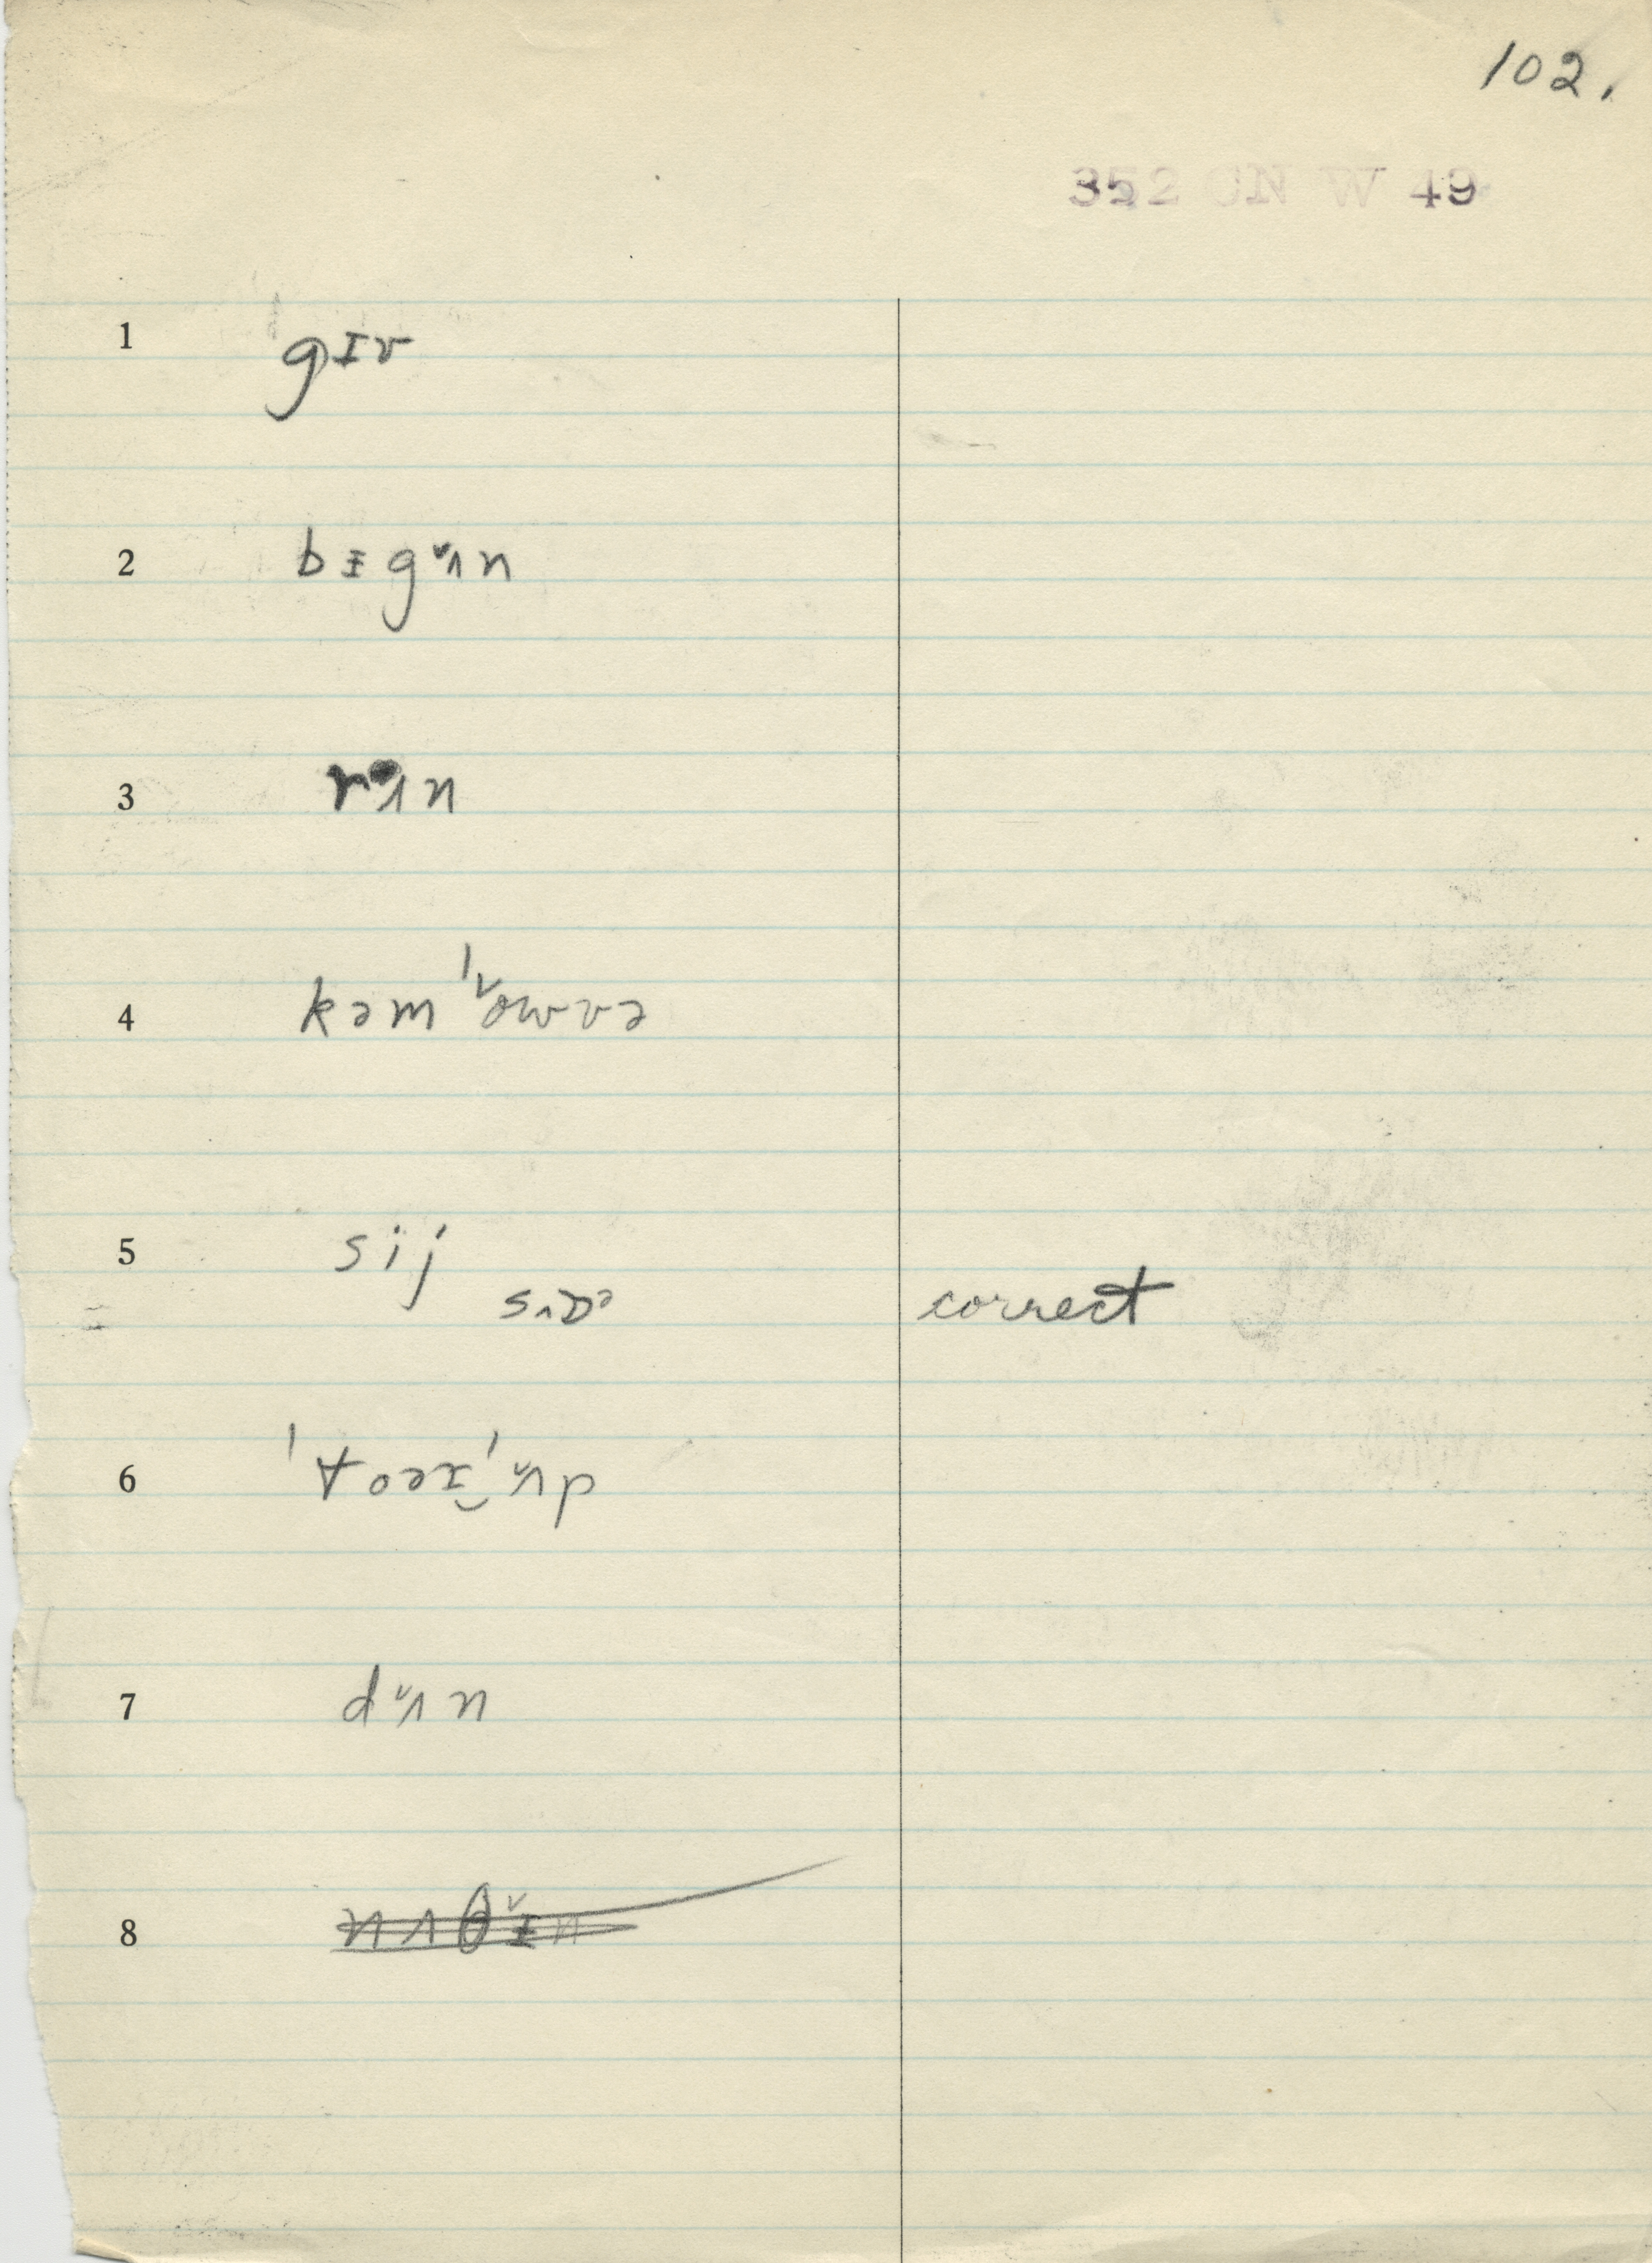 102.
352 ON W 49
1 gɪv
2 bɪ̵gʌ̌n
3 rʌn
4 kəm'ǒwvə
5 sij
correct
6
7 dʌ̌n
8 nʌθɪ̵̌n